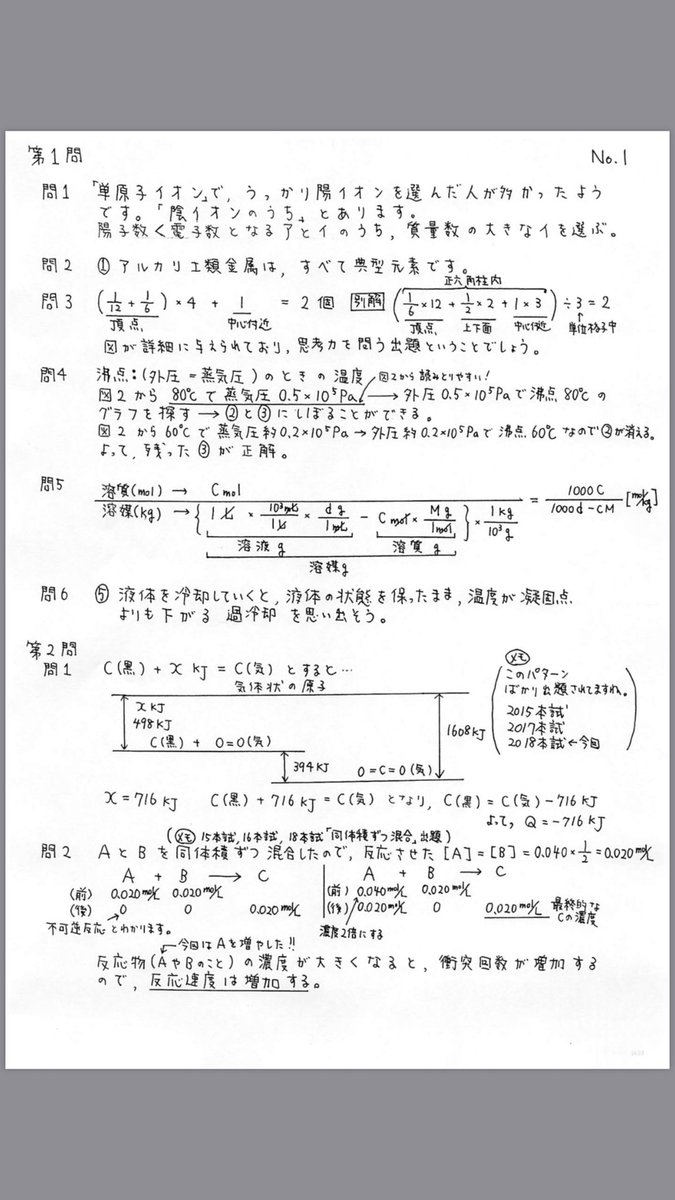 第1問 No.1
問1 「単原子イオン」で，うっかり陽イオンを選んだ人が多かったよう
です。「陰イオンのうち」とあります。
陽子数<電子数となるアとイのうち，質量数の大きなイを選ぶ。
問2 ① アルカリ土類金属は，すべて典型元素です。
正六角柱内
問3 (1/12 + 1/6) × 4 + 1 = 2個 別解 (1/6 × 12 + 1/2 × 2 + 1 × 3) ÷ 3 = 2
頂点 中心付近 頂点 上下面 中心付近 単位格子中
図が詳細に与えられており，思考力を問う出題ということでしょう。
問4 沸点：(外圧＝蒸気圧)のときの温度 図2から読みとりやすい！
図2から 80℃で蒸気圧 0.5×10⁵Pa → 外圧 0.5×10⁵Paで沸点 80℃の
グラフを探す → ②と③にしぼることができる。
図2から60℃で蒸気圧約0.2×10⁵Pa → 外圧約0.2×10⁵Paで沸点60℃なので②が消える。
よって，残った③が正解。
問5 溶質(mol) → C mol
溶媒(kg) → {1L × 10³mL/1L × d g/1mL − C mol × M g/1mol} × 1kg/10³g = 1000C/1000d−CM [mol/kg]
溶液g 溶質g
溶媒g
問6 ⑤ 液体を冷却していくと，液体の状態を保ったまま，温度が凝固点
よりも下がる 過冷却 を思い出そう。
第2問
問1 C(黒) + x kJ = C(気) とすると…
気体状の原子
x kJ
498kJ
C(黒) + O=O(気)
394kJ
O=C=O(気)
1608kJ
メモ
このパターン
ばかり出題されてますね。
2015本試
2017本試
2018本試←今回
x = 716 kJ C(黒) + 716 kJ = C(気) となり，C(黒) = C(気) − 716 kJ
よって，Q = −716 kJ
(メモ 15本試，16本試，18本試「同体積ずつ混合」出題)
問2 AとBを同体積ずつ混合したので，反応させた [A] = [B] = 0.040 × 1/2 = 0.020mol/L
A + B → C A + B → C
(前) 0.020mol/L 0.020mol/L (前) 0.040mol/L 0.020mol/L
(後) 0 0 0.020mol/L (後) 0.020mol/L 0 0.020mol/L 最終的なCの濃度
不可逆反応とわかります。 濃度2倍にする
今回はAを増やした!!
反応物(AやBのこと)の濃度が大きくなると，衝突回数が増加する
ので，反応速度は増加する。